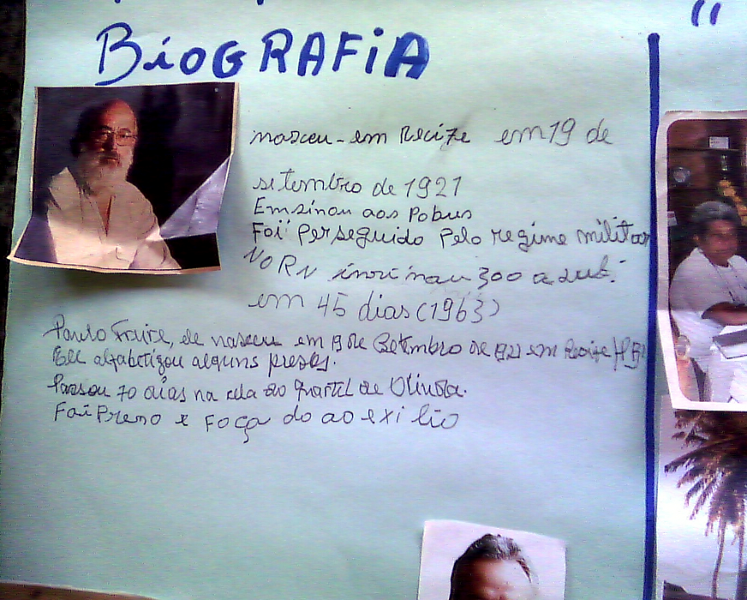 BiOGRAFiA
nasceu-em Recife em 19 de
setembro de 1921
Emsinou aos Pobres
Foi Perseguido Pelo regime militar
NO RN insinnau 300 adult.
em 45 dias (1963)
Paulo Freire, ele nasceu em 19 de Setembro de 1921 em Recife/PE
Ele alfabetizou alguns presos.
Passou 70 dias na cela do quartel de Olinda.
Foi Preso e Foçado ao exilio